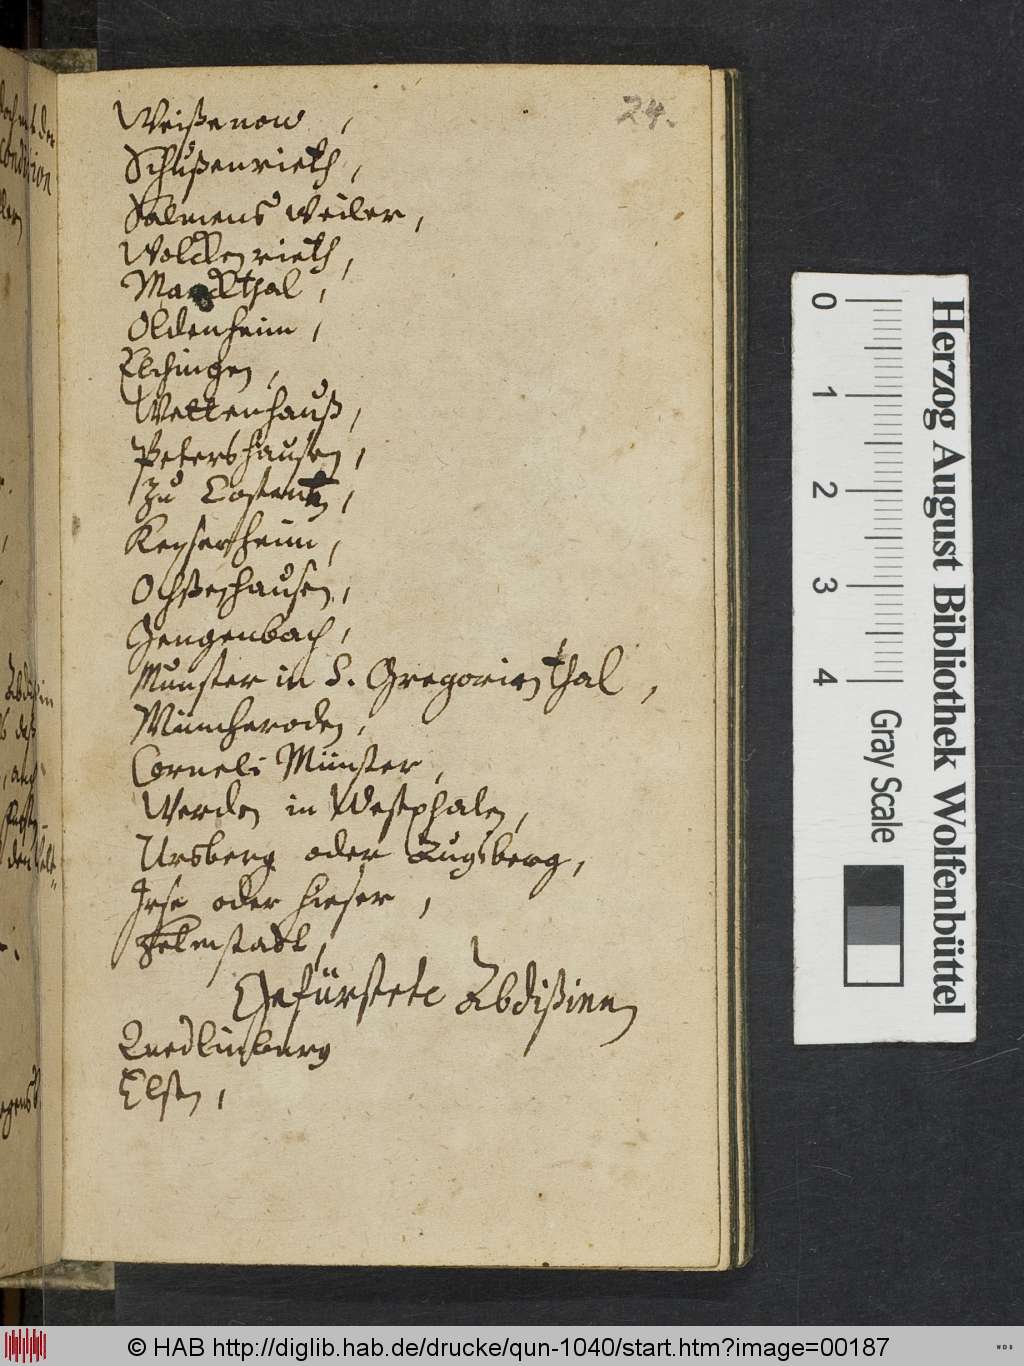 24.
Weißenow,
Schußenrieth,
Salmens Weiler,
Wolcken rieth,
Marckthal,
Oldenheim,
Elchingen,
Wettenhauß,
Petershausen,
Zu Costentz,
Keyserheim,
Ochßenhausen,
Gengenbach,
Munster in S. Gregorien thal,
Müncheroden,
Corneli Münster,
Werden in Westphalen,
Ursberg oder Augsberg,
Irse oder hieser,
Helmstadt,
Gefürstete Abdißinn
Quedlinburg
Eßen,
Herzog August Bibliothek Wolfenbüttel
0 1 2 3 4
Gray Scale
© HAB http://diglib.hab.de/drucke/qun-1040/start.htm?image=00187